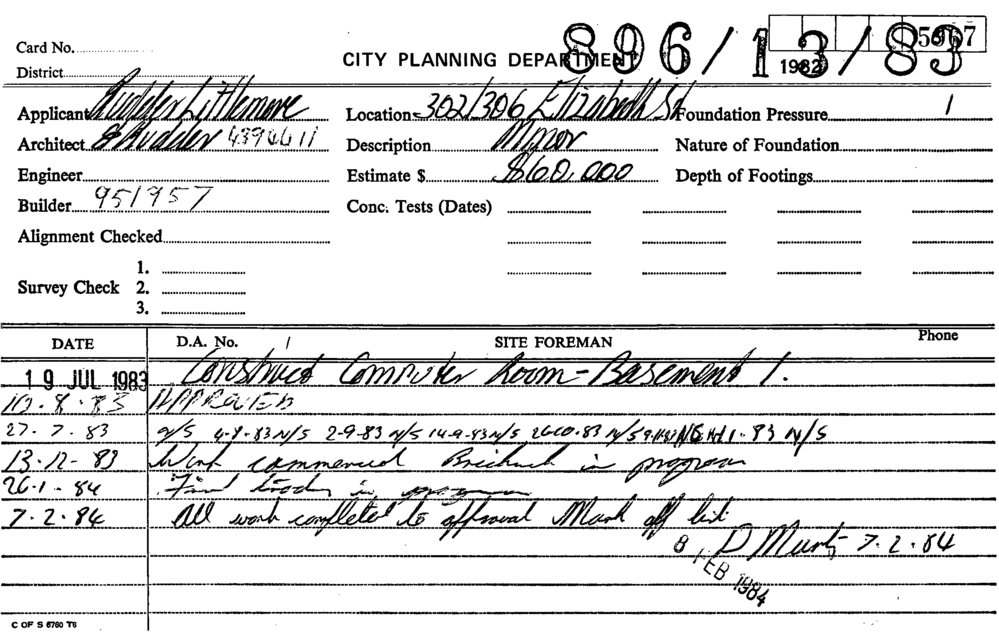 Card No.
CITY PLANNING DEPARTMENT 896/13/83
1982
District
Applicant Rudder Littlemore Location 302/306 Elizabeth St Foundation Pressure
Architect & Rudder 4394611 Description Minor Nature of Foundation
Engineer Estimate $ $60,000 Depth of Footings
Builder 951957 Conc. Tests (Dates)
Alignment Checked
1.
Survey Check 2.
3.
DATE D.A. No. / SITE FOREMAN Phone
19 JUL 1983 Construct Computer Room - Basement 1.
10.8.83 APPROVED
27.7.83 N/S 4-8-83 N/S 2-9-83 N/S 14-9-83 N/S 26-10-83 N/S 83 N/S
13.12.83 Work commenced Brickwork in progress
26.1.84 Final trades in progress
7.2.84 All work completed to approval Mark off list
D 7.2.84
8 FEB 1984
C OF S 6760 T6